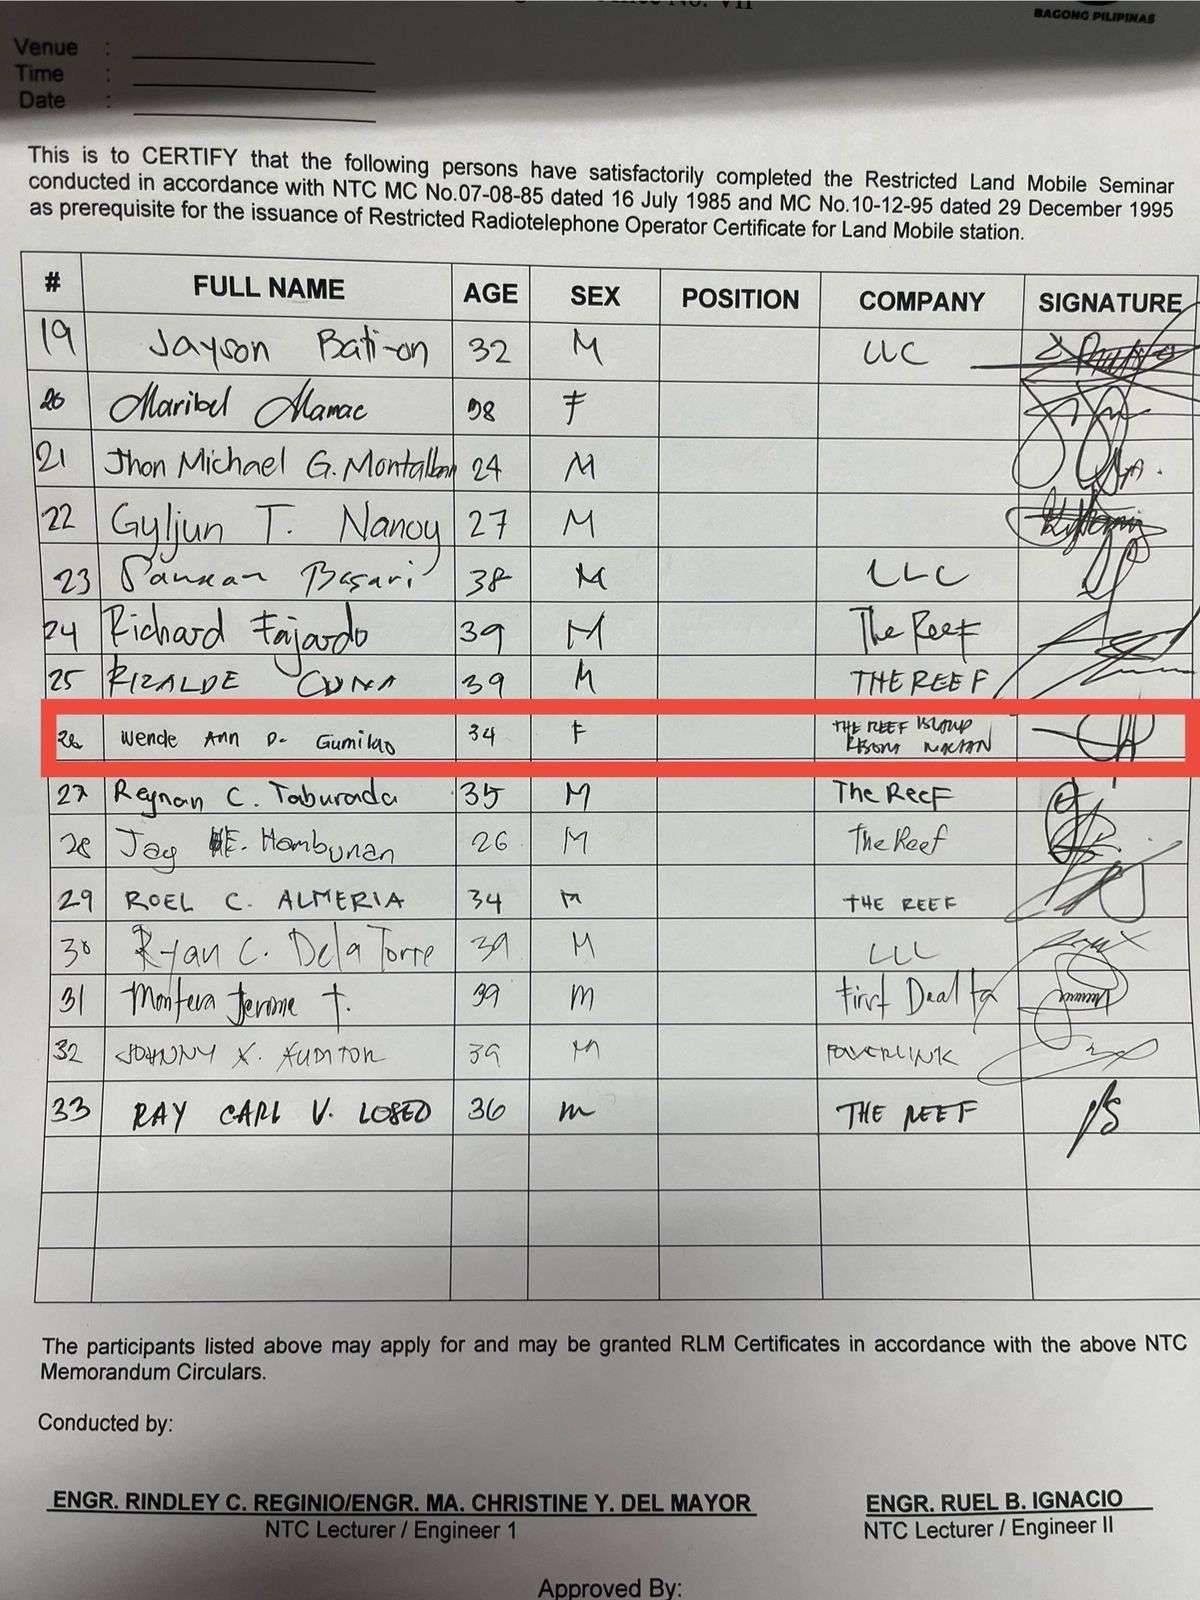 No. VII
BAGONG PILIPINAS
Venue :
Time :
Date :
This is to CERTIFY that the following persons have satisfactorily completed the Restricted Land Mobile Seminar
conducted in accordance with NTC MC No.07-08-85 dated 16 July 1985 and MC No.10-12-95 dated 29 December 1995
as prerequisite for the issuance of Restricted Radiotelephone Operator Certificate for Land Mobile station.
# FULL NAME AGE SEX POSITION COMPANY SIGNATURE
19 Jayson Bati-on 32 M LLC
20 Maribel Mamac 38 F
21 Jhon Michael G. Montalban 24 M
22 Gyljun T. Nanoy 27 M
23 Basari 38 M LLC
24 Richard Fajardo 39 M The Reef
25 RIZALDE CUNA 39 M THE REEF
26 Wende Ann D. Gumilao 34 F THE REEF ISLAND
RESORT MACTAN
27 Reynan C. Taburada 35 M The Reef
28 Jay E. Hambunan 26 M The Reef
29 ROEL C. ALMERIA 34 M THE REEF
30 Ryan C. Dela Torre 39 M LLC
31 Montera Jerome T. 39 m First Dealta
32 JOHNNY X. AUMTOR 39 M POWERLINK
33 RAY CARL V. LOSED 36 m THE REEF
The participants listed above may apply for and may be granted RLM Certificates in accordance with the above NTC
Memorandum Circulars.
Conducted by:
ENGR. RINDLEY C. REGINIO/ENGR. MA. CHRISTINE Y. DEL MAYOR ENGR. RUEL B. IGNACIO
NTC Lecturer / Engineer 1 NTC Lecturer / Engineer II
Approved By: